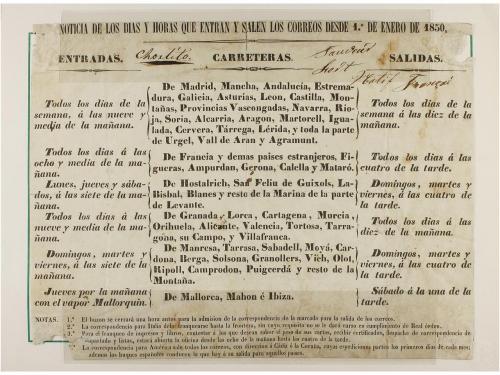 NOTICIA DE LOS DIAS Y HORAS QUE ENTRAN Y SALEN LOS CORREOS DESDE 1.º DE ENERO DE 1850,
ENTRADAS. CARRETERAS. SALIDAS.
Todos los dias de la
semana, á las nueve y
media de la mañana.
De Madrid, Mancha, Andalucía, Estrema-
dura, Galicia, Asturias, Leon, Castilla, Mon-
tañas, Provincias Vascongadas, Navarra, Rio-
ja, Soria, Alcarria, Aragon, Martorell, Igua-
lada, Cervera, Tárrega, Lérida, y toda la parte
de Urgel, Vall de Aran y Agramunt.
Todos los dias de la
semana á las diez de la
mañana.
Todos los dias á las
ocho y media de la ma-
ñana.
De Francia y demas paises estranjeros, Fi-
gueras, Ampurdan, Gerona, Calella y Mataró.
Todos los dias á las
cuatro de la tarde.
Lunes, jueves y sába-
dos, á las siete de la ma-
ñana.
De Hostalrich, San Feliu de Guixols, La-
Bisbal, Blanes y resto de la Marina de la parte
de Levante.
Domingos, martes y
viernes, á las cuatro de
la tarde.
Todos los dias á las
nueve y media de la ma-
ñana.
De Granada, Lorca, Cartagena, Murcia,
Orihuela, Alicante, Valencia, Tortosa, Tarra-
gona, su Campo, y Villafranca.
Todos los dias á las
diez de la mañana.
Domingos, martes y
viernes, á las siete de la
mañana.
De Manresa, Tarrasa, Sabadell, Moyá, Car-
dona, Berga, Solsona, Granollers, Vich, Olot,
Ripoll, Camprodon, Puigcerdá y resto de la
Montaña.
Domingos, martes y
viernes, á las cuatro de
la tarde.
Jueves por la mañana
con el vapor Mallorquin.
De Mallorca, Mahon é Ibiza.
Sábado á la una de la
tarde.
NOTAS. 1.ª El buzon se cerrará una hora antes para la admision de la correspondencia de la marcada para la salida de los correos.
2.ª La correspondencia para Italia debe franquearse hasta la frontera, sin cuyo requisito no se le dará curso en cumplimiento de Real órden.
3.ª Para el franqueo de impresos y libros, contestar á los que deseen saber el peso de sus cartas, recibir certificados, despacho de correspondencia de
apartado y listas, estará abierta la oficina desde las ocho de la mañana hasta las cuatro de la tarde.
La correspondencia para América sale todos los correos, con direccion á Cádiz ó la Coruña, cuyas espediciones parten los primeros dias de cada mes;
ademas los buques españoles conducen la que hay á su salida para aquellos paises.